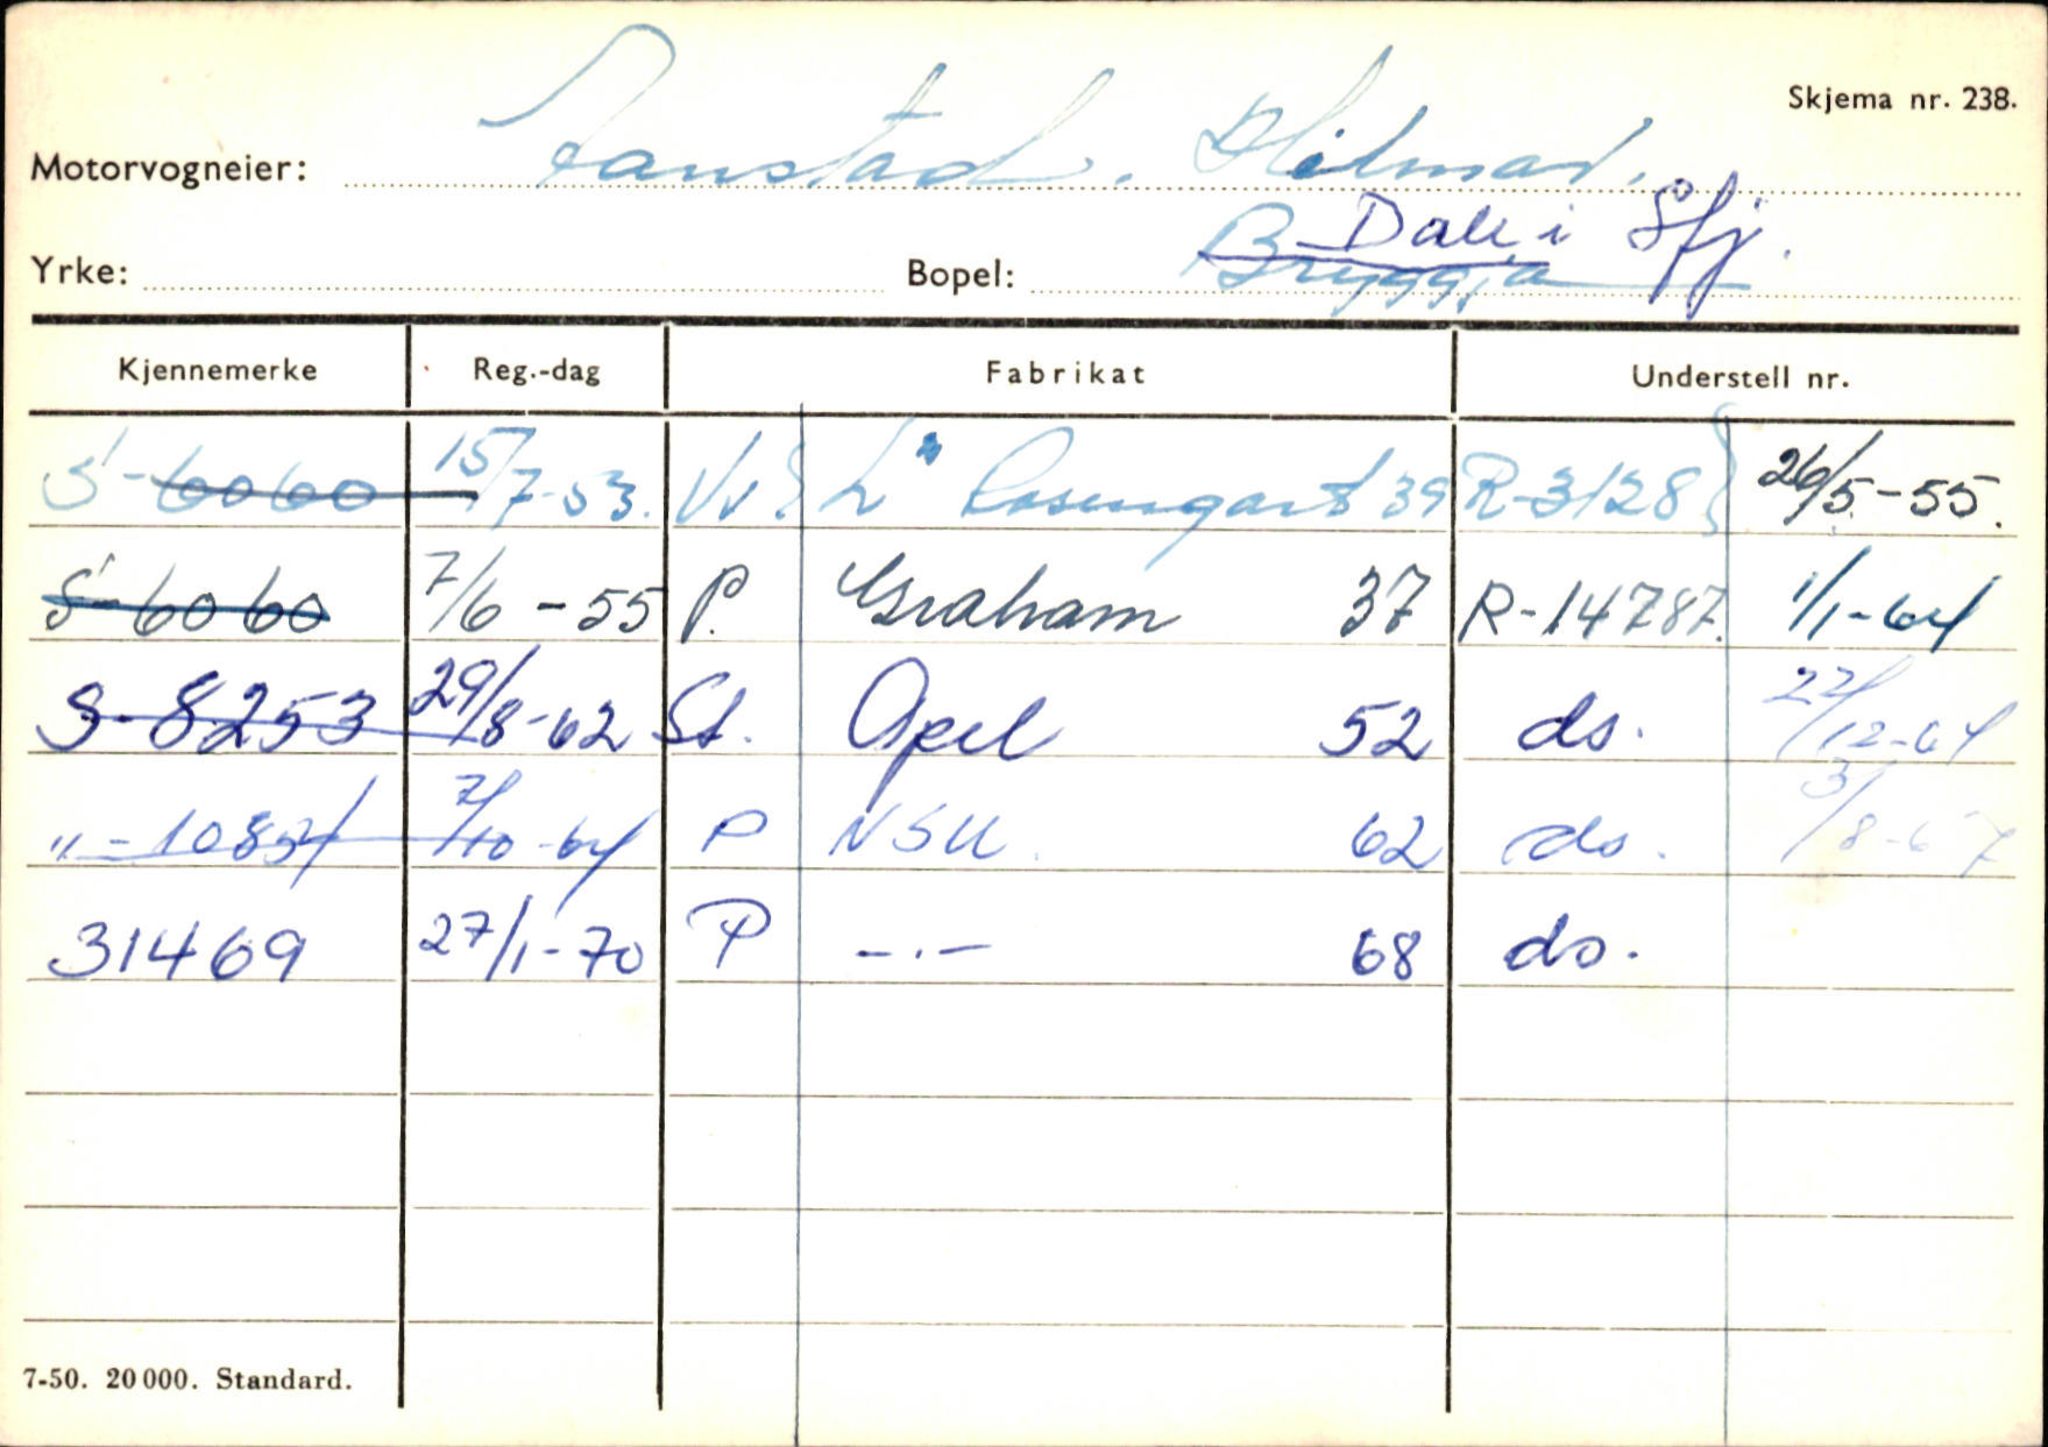 Skjema nr. 238.
Motorvogneier: Taustad. Hilmar.
Dale i Sfj.
Yrke: Bopel: Bryggja
Kjennemerke Reg.-dag Fabrikat Understell nr.
S-6060 15/7-53. Rosengart 39 R-3128 26/5-55.
S-6060 7/6-55 P. Graham 37 R-14787. 1/1-64
S-8253 29/8-62 St. Opel 52 ds. 22/12-64
"-10854 7/10-64 P NSU. 62 ds. 3/8-67
31469 27/1-70 P -.- 68 ds.
7-50. 20 000. Standard.